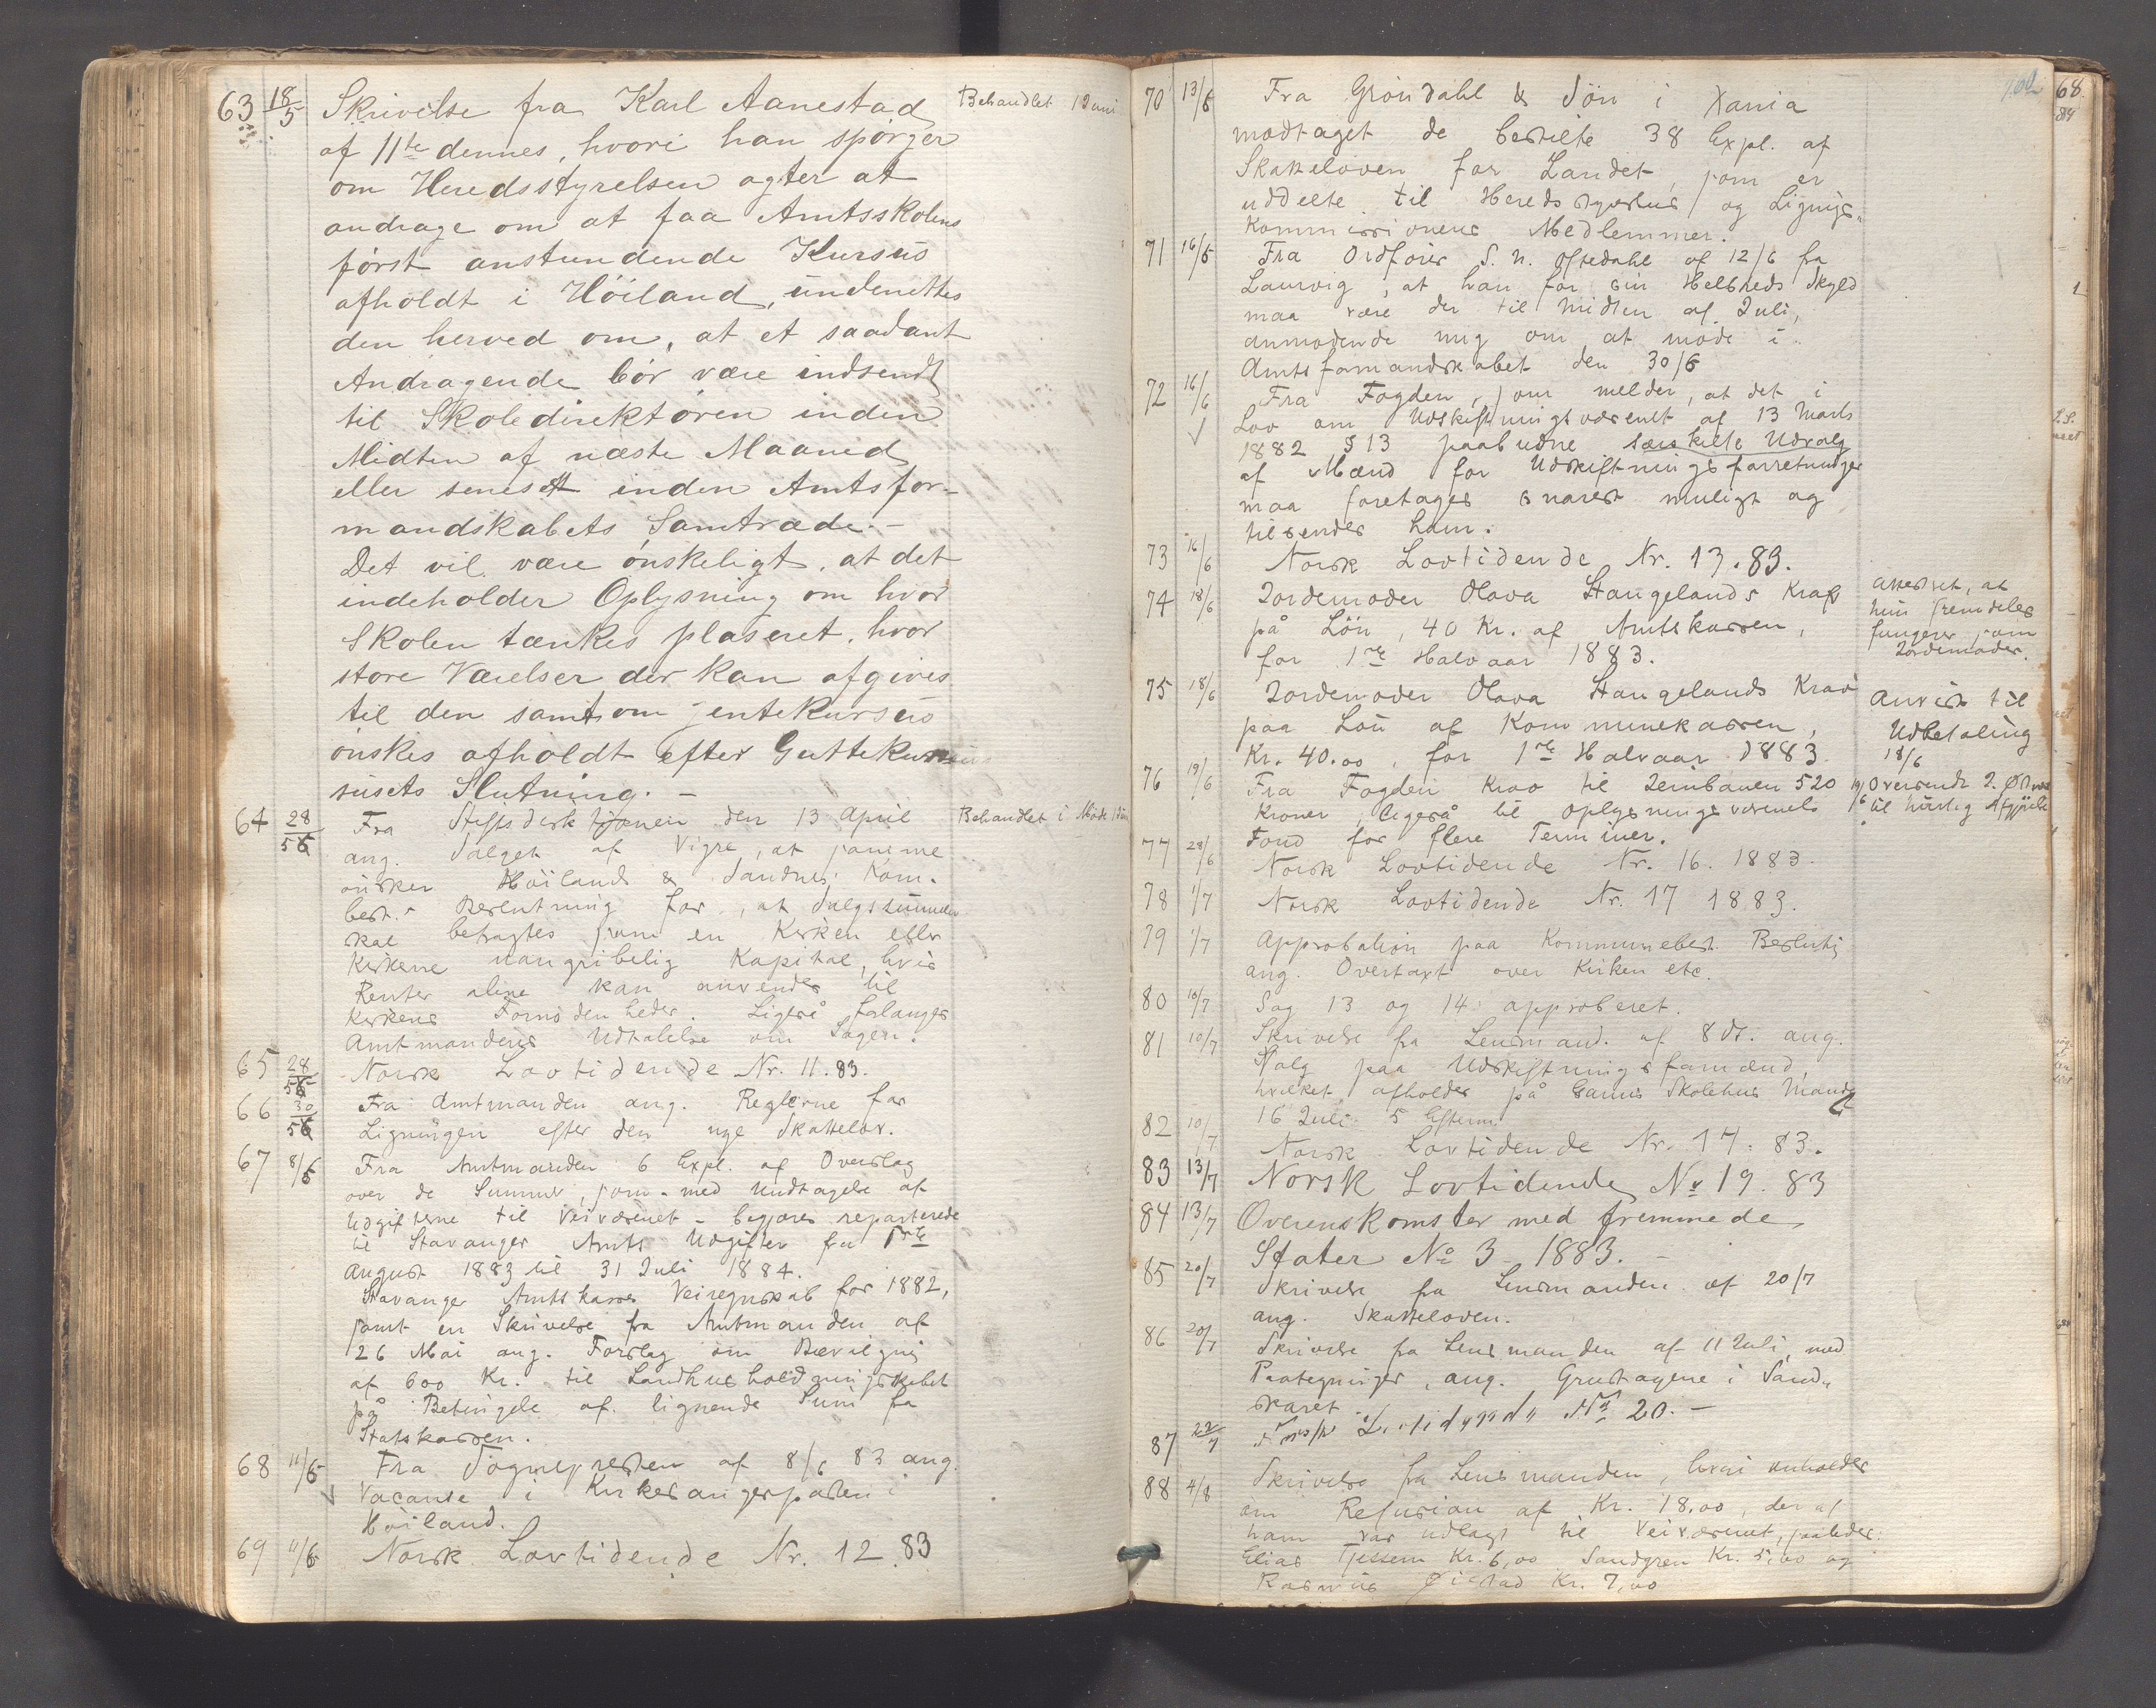 63 18/5 Skrivelse fra Karl Aanestad Behandlet 1 Juni
af 11te dennes, hvori han spørger
om Heredsstyrelsen agter at
andrage om at faa Amtsskolens
først anstundende Kursus
afholdt i Höiland, underrettes
den herved om, at et saadant
Andragende bör være indsendt
til Skoledirektören inden
Midten af næste Maaned
eller senest inden Amtsfor-
mandskabets Samtræde. -
Det vil være önskeligt, at det
indeholder Oplysning om hvor
Skolen tænkes plaseret, hvor
store Værelser der kan afgives
til den samt om jentekursus
önskes afholdt efter Guttekur
susets Slutning. -
64 28/5 Fra Stiftsdirektionen den 13 April Behandlet i Möde 1 Juni
ang. Salget af Vigre, at samme
önsker Höilands & Sandnes Kom.
best.s Beslutning for, at Salgssummen
skal betragtes som en Kirken eller
Kirkerne uangribelig Kapital, hvis
Renter alene kan anvendes til
Kirkens Fornödenheder. Ligeså forlanges
Amtmandens Udtalelse om Sagen.
65 28/5 Norsk Lovtidende Nr. 11. 83.
66 30/5 Fra Amtmanden ang. Reglerne for
Ligningen efter den nye Skattelov.
67 8/6 Fra Amtmanden 6 Expl. af Overslag
over de Summer, som - med Undtagelse af
Udgifterne til Veivæsenet - begjæres reparterede
til Stavanger Amts Udgifter fra 1ste
August 1883 til 31 Juli 1884.
Stavanger Amtskasses Veiregnskab for 1882,
samt en Skrivelse fra Amtmanden af
26 Mai ang. Forslag om Bevilgnig
af 600 Kr. til Landhusholdningsskabet
på Betingele af lignende Sum fra
Statskassen.
68 11/6 Fra Sognepresten af 8/6 83 ang.
Vacanse i Kirkesangerposten i
Höiland.
69 11/6 Norsk Lovtidende Nr. 12. 83
70 13/6 Fra Gröndahl & Sön i Xania
modtaget de bestilte 38 Expl. af
Skatteloven for Landet, som er
uddelte til Heredsstyrelsens og Lignigs-
Kommissionens Medlemmer.
71 16/6 Fra Ordförer S. N. Oftedahl af 12/6 fra
Laurvig, at han for sin Helbreds Skyld
maa være der til Midten af Juli,
anmodende mig om at möde i
Amtsformandskabet den 30/6
72 16/6 Fra Fogden, som melder, at det i
Lov om Udskiftningsvæsenet af 13 Marts
1882 § 13 paabudne særskilte Udvalg
af Mænd for Udskiftningsforretninger
maa foretages snarest muligt og
tilsendes ham.
73 16/6 Norsk Lovtidende Nr. 13. 83.
74 18/6 Jordemoder Olava Stangelands Krav
på Lön, 40 Kr. af Amtskassen,
for 1ste Halvaar 1883.
attesteret, at
hun fremdeles
fungerer som
Jordemoder.
75 18/6 Jordemoder Olava Stangelands Krav
paa Lön af Kommunekassen,
Kr. 40.00, for 1ste Halvaar 1883.
Anvist til
Udbetaling
18/6
76 19/6 Fra Fogden Krav til Jernbanen 520
Kroner, ligeså til Oplysningsvæsenets
Fond for flere Terminer.
19/6 Oversendt
til hurtig Afgjörelse
77 28/6 Norsk Lovtidende Nr. 16. 1883.
78 1/7 Norsk Lovtidende Nr. 17 1883.
79 1/7 Approbation paa Kommunebest. Beslutn
ang. Overtaxt over Kirken etc.
80 10/7 Sag 13 og 14 approberet.
81 10/7 Skrivelse fra Lensmand. af 8 ds. ang.
Valg paa Udskiftningsformænd,
hvilket afholdes på Gauns Skolehus Mandg
16 Juli 5 Efterm.
82 10/7 Norsk Lovtidende Nr. 14. 83.
83 13/7 Norsk Lovtidende No 19. 83
84 13/7 Overenskomster med fremmede
Stater No 3 - 1883. -
85 20/7 Skrivelse fra Lensmanden af 20/7
ang. Skatteloven.
86 20/7 Skrivelse fra Lensmanden af 11 Juli, med
Paategninger, ang. Grustagene i Sand-
skaret.
87 22/7 Norsk Lovtidende No 20. -
88 4/8 Skrivelse fra Lensmanden, hvori anholdes
om Refusion af Kr. 18,00, der af
ham var udlagt til Veivæsenet,
Elias Tjessem Kr. 6,00 Sandgren Kr. 5,00 og
Rasmus Kr. 7,00
68.